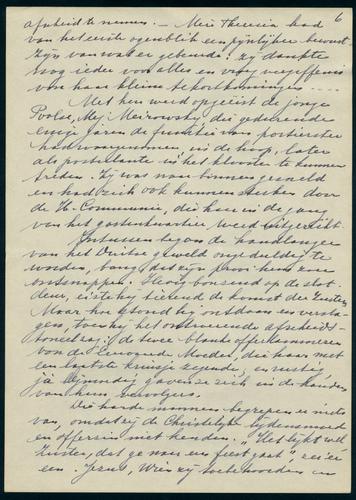 6
afscheid te nemen. — Mei Theresia had
van het eerste ogenblik een pijnlijke bewust
zijn van wat er gebeurde: zij dankte
nog ieder voor alles en vroeg vergeffenis
van haar kleine tekortkomingen ....
Met hen werd opgeëist de jonge
Poolse, Mej. Meirowsky, die gedurende
enige jaren de functie van portierster
had waargenomen, in de hoop, later
als postulante in 't klooster te kunnen
treden. Zij was naar binnen gesneld
en had zich ook kunnen sterken door
de H. Communie, die hen in de gang
van het gastenkwartier, werd uitgereikt.
Intussen begon de handlanger
van het Duitse geweld ongeduldig te
worden, bang, dat zijn prooi hem zou
ontsnappen. Hevig bonzend op de slot
deur, eiste hij tierend de komst der Zusters
Maar hoe stond hij ontdaan en versla
gen, toen hij het ontroerende afscheids-
toneel zag: de twee blanke offerlammeren
voor de Eerwaarde Moeder, die haar met
een laatste kruisje zegende, en rustig,
ja blijmoedig gaven ze zich in de handen
van hun vervolgers.
Die harde mannen begrepen er niets
van, omdat zij de Christelijke lijdensmoed
en offerzin niet kenden. "Het lijkt wel
Zuster, dat ge naar een feest gaat" zei er
een. Jezus, Wien zij toebehoorden in